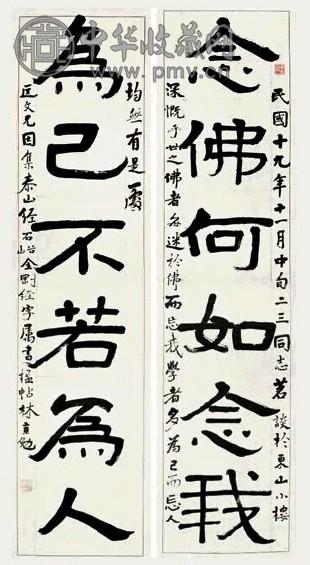 中华收藏网
www.pmv.cn
民國十九年十一月中旬二三同志茗談於東山小樓
念佛何如念我
深慨乎世之佛者多迷於佛而忘我學者多為己而忘人
均然有是處
為己不若為人
匡文兄因集泰山經石峪金剛經字屬書楹帖林直勉